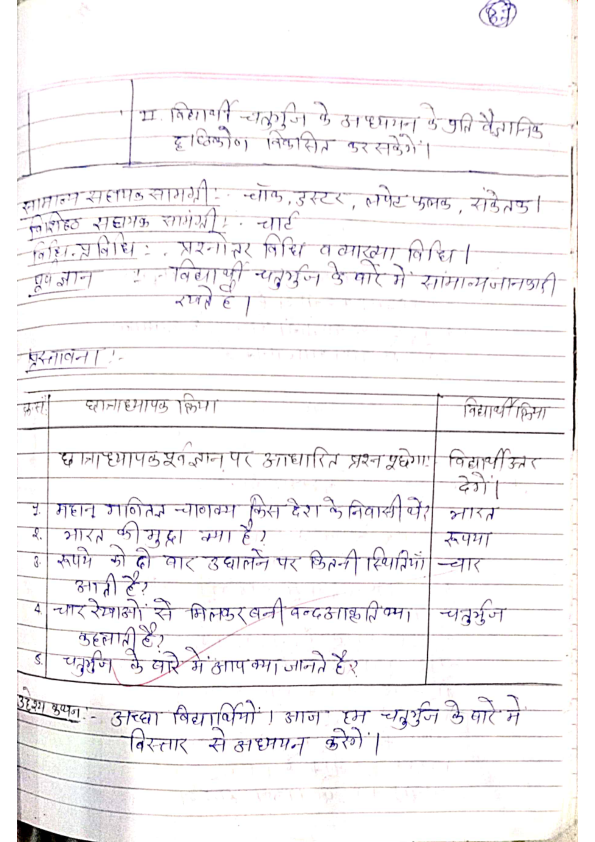 II. विद्यार्थी चतुर्भुज के अध्ययन के प्रति वैज्ञानिक
दृष्टिकोण विकसित कर सकेंगे।
सामान्य सहायक सामग्री:- चॉक, डस्टर, लपेट फलक, संकेतक।
विशिष्ट सहायक सामग्री:- चार्ट
विधि-प्रविधि:- प्रश्नोत्तर विधि व व्याख्या विधि।
पूर्व ज्ञान :- विद्यार्थी चतुर्भुज के बारे में सामान्य जानकारी
रखते हैं।
प्रस्तावना:-
क्र.सं. छात्राध्यापक क्रिया विद्यार्थी क्रिया
छात्राध्यापक पूर्व ज्ञान पर आधारित प्रश्न पूछेगा: विद्यार्थी उत्तर
देगें।
1. महान गणितज्ञ चाणक्य किस देश के निवासी थे? भारत
2. भारत की मुद्रा क्या है? रूपया
3. रूपये को दो बार उछालने पर कितनी स्थितियाँ चार
आती है?
4. चार रेखाओं से मिलकर बनी बन्द आकृति क्या चतुर्भुज
कहलाती है?
5. चतुर्भुज के बारे में आप क्या जानते है?
उद्देश्य कथन:- अच्छा विद्यार्थियों। आज हम चतुर्भुज के बारे में
विस्तार से अध्ययन करेगें।